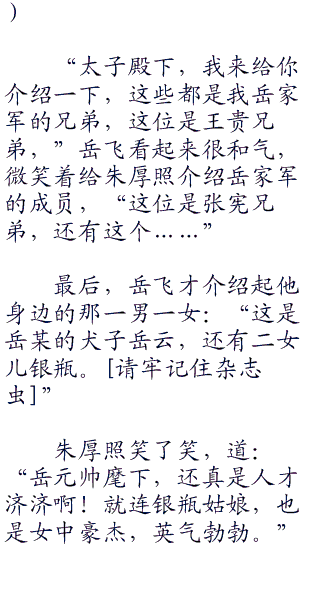 ）
“太子殿下，我来给你
介绍一下，这些都是我岳家
军的兄弟，这位是王贵兄
弟，”岳飞看起来很和气，
微笑着给朱厚照介绍岳家军
的成员，“这位是张宪兄
弟，还有这个……”
最后，岳飞才介绍起他
身边的那一男一女：“这是
岳某的犬子岳云，还有二女
儿银瓶。[请牢记住杂志
虫]”
朱厚照笑了笑，道：
“岳元帅麾下，还真是人才
济济啊！就连银瓶姑娘，也
是女中豪杰，英气勃勃。”